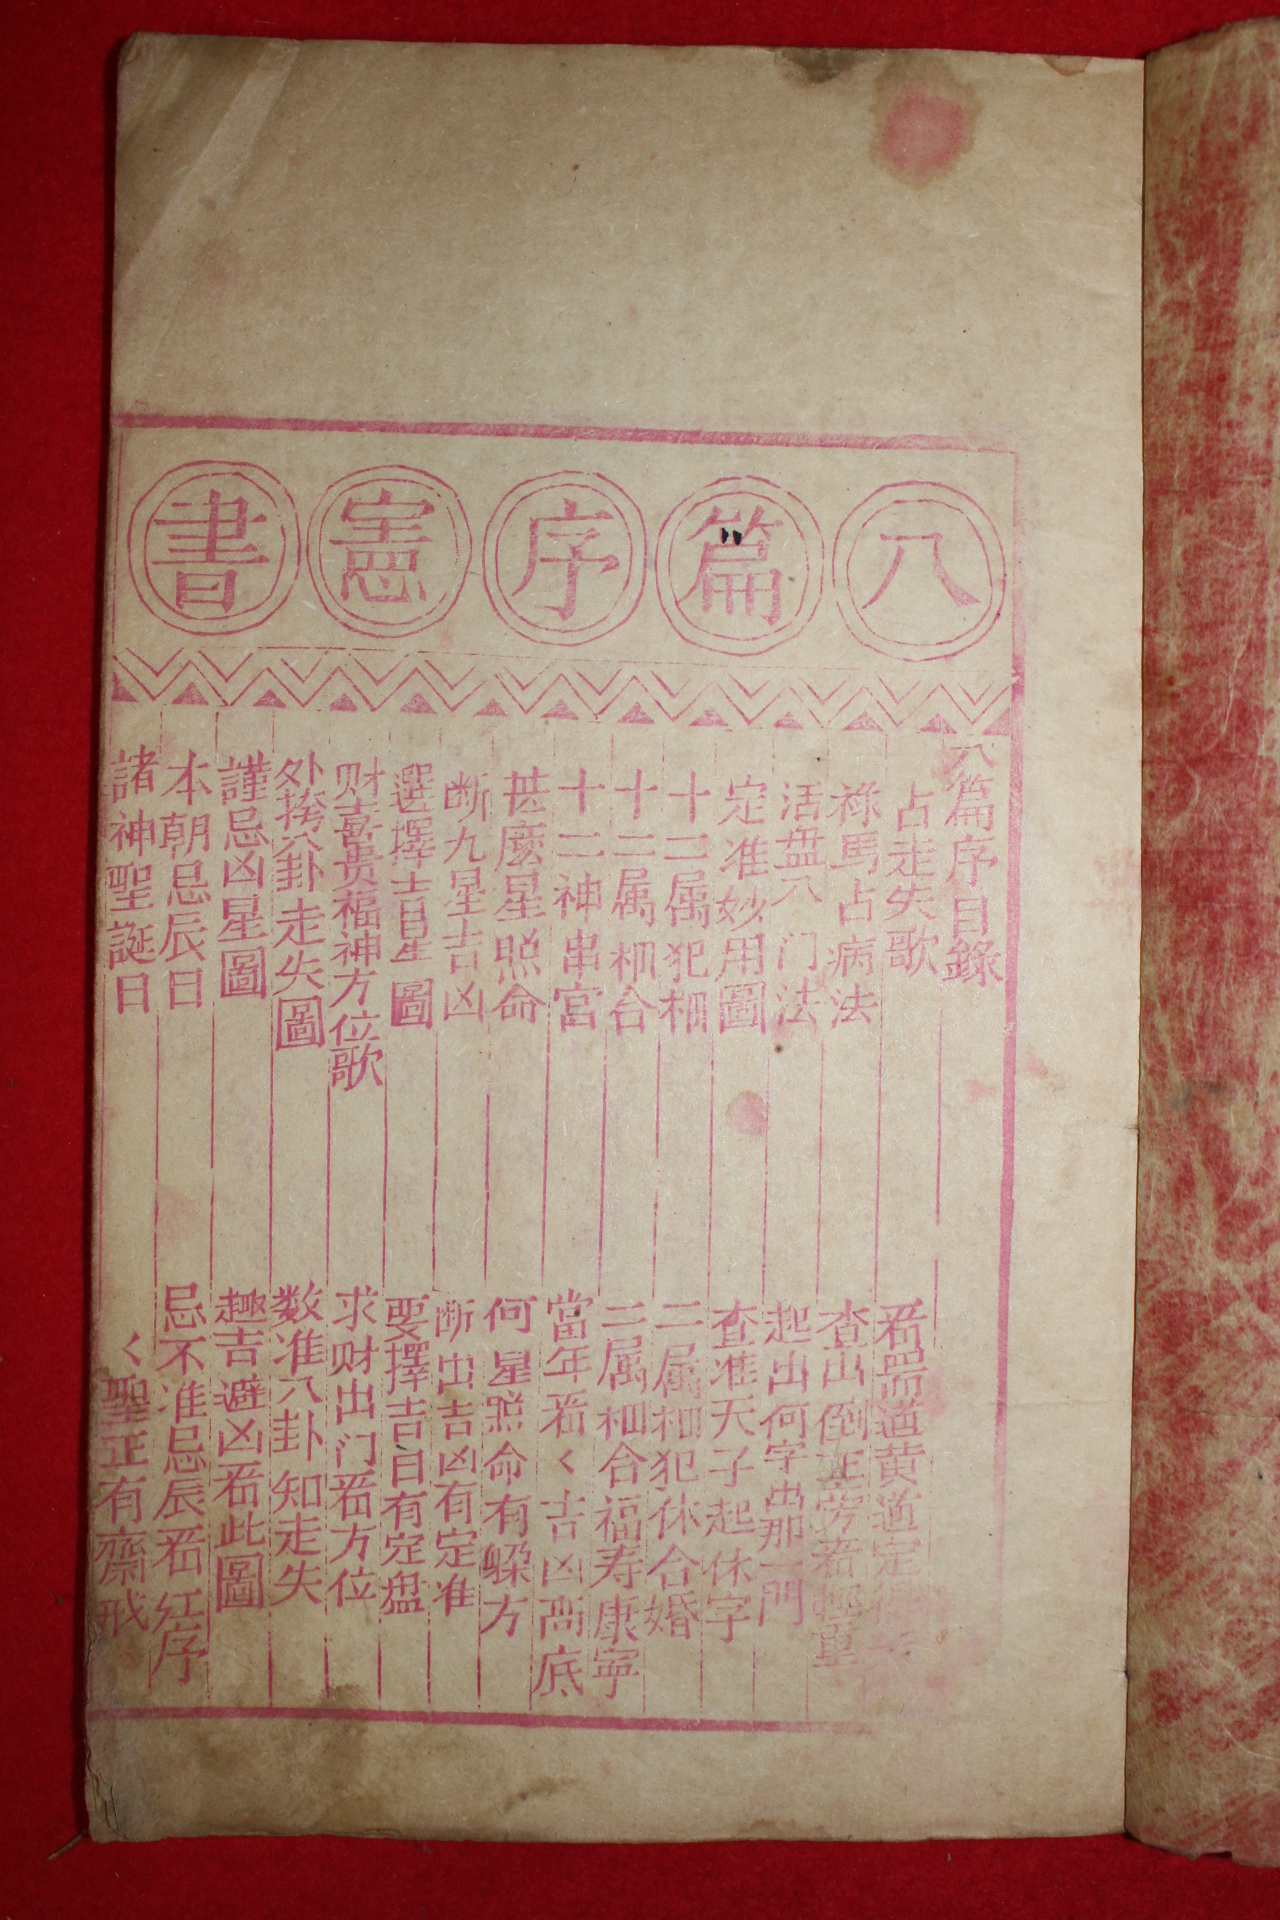 八篇序憲書
八篇序目錄
占走失歌
看黃道定
祿馬占病法
查出倒正旁看輕重
活盘八门法
起出何字出那一門
定准妙用圖
查准天子起休字
十二属犯相
二属相犯休合婚
十二属相合
二属相合福寿康寧
十二神串宮
當年看〱吉凶高底
甚麼星照命
何星照命有躱方
断九星吉凶
断出吉凶有定准
選擇吉星圖
要擇吉日有定盘
财喜贵福神方位歌
求财出门看方位
外挎八卦走失圖
数准八卦知走失
謹忌凶星圖
趣吉避凶看此圖
本朝忌辰日
忌不准忌辰看红序
諸神聖誕日
〱聖正有齋戒